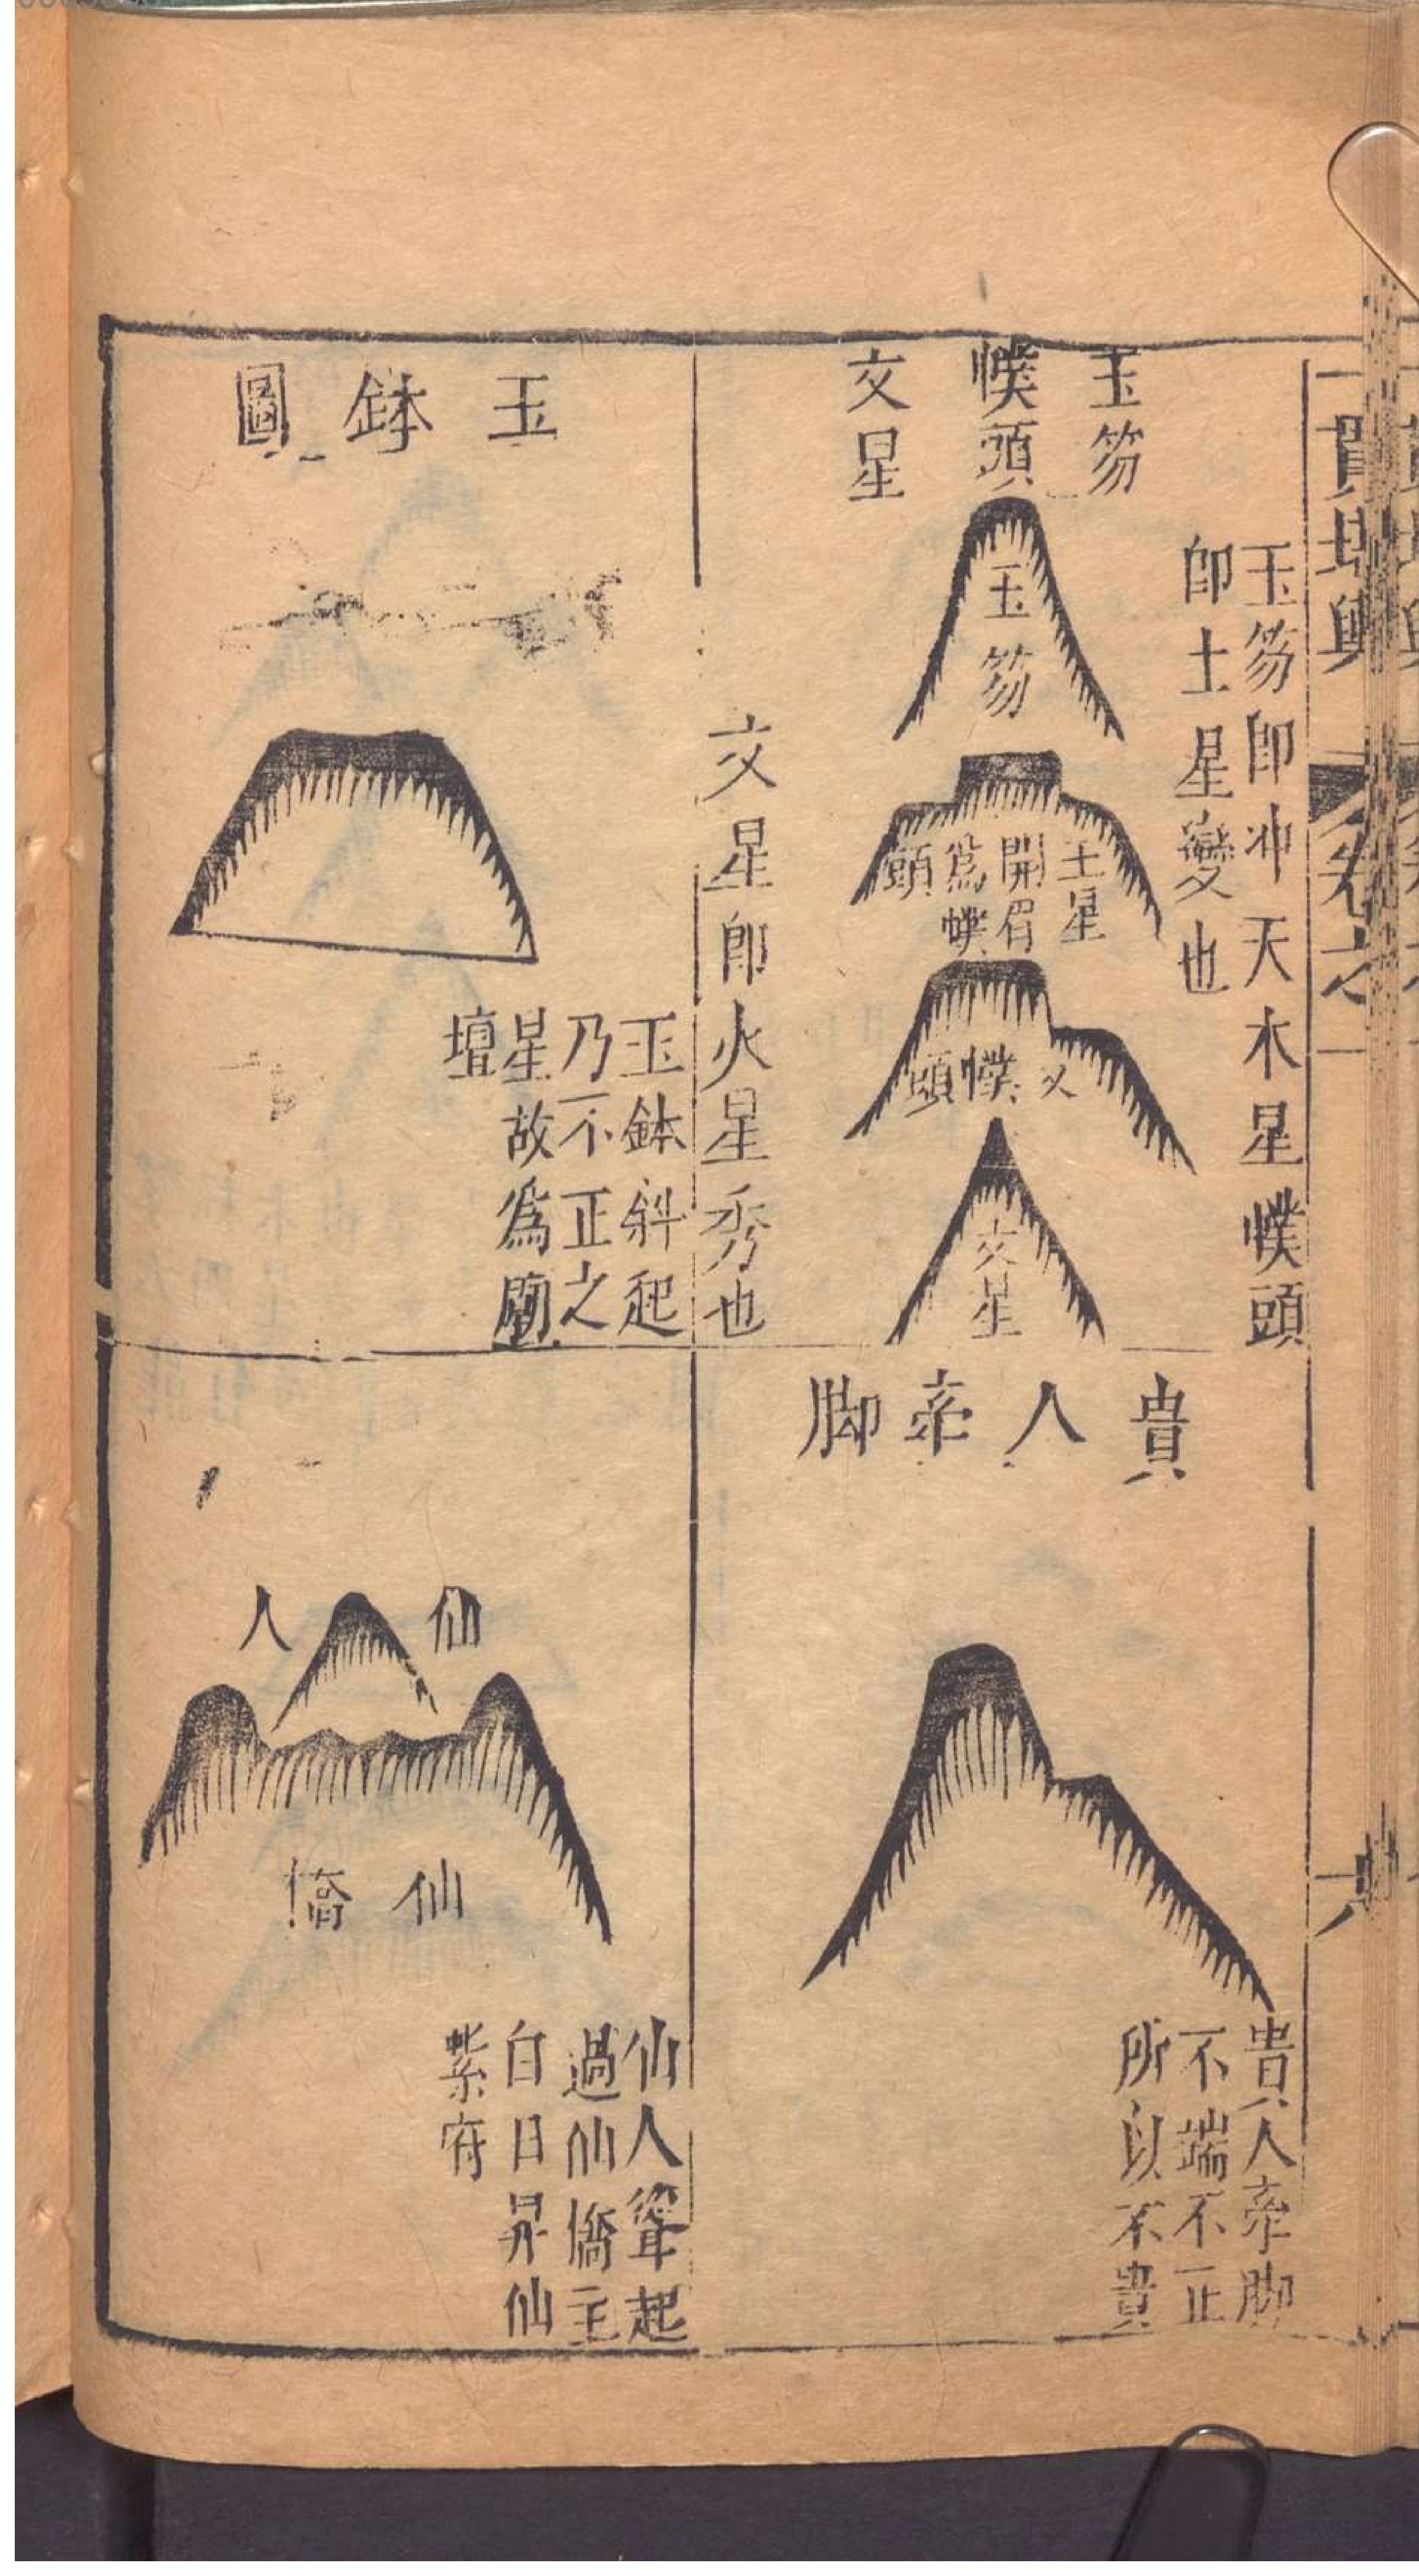 一貫堪輿
卷之
六
玉笏
幞頭
文星
玉笏即冲天木星幞頭
即土星變也
玉笏
土星
開眉
為幞
頭
又幞頭
文星
文星即火星秀也
玉鉢圖
玉鉢斜起
乃不正之
星故為廟
壇
貴人牽脚
貴人牽脚
不端不正
所以不貴
仙人
仙橋
仙人聳起
過仙橋主
白日昇仙
紫府